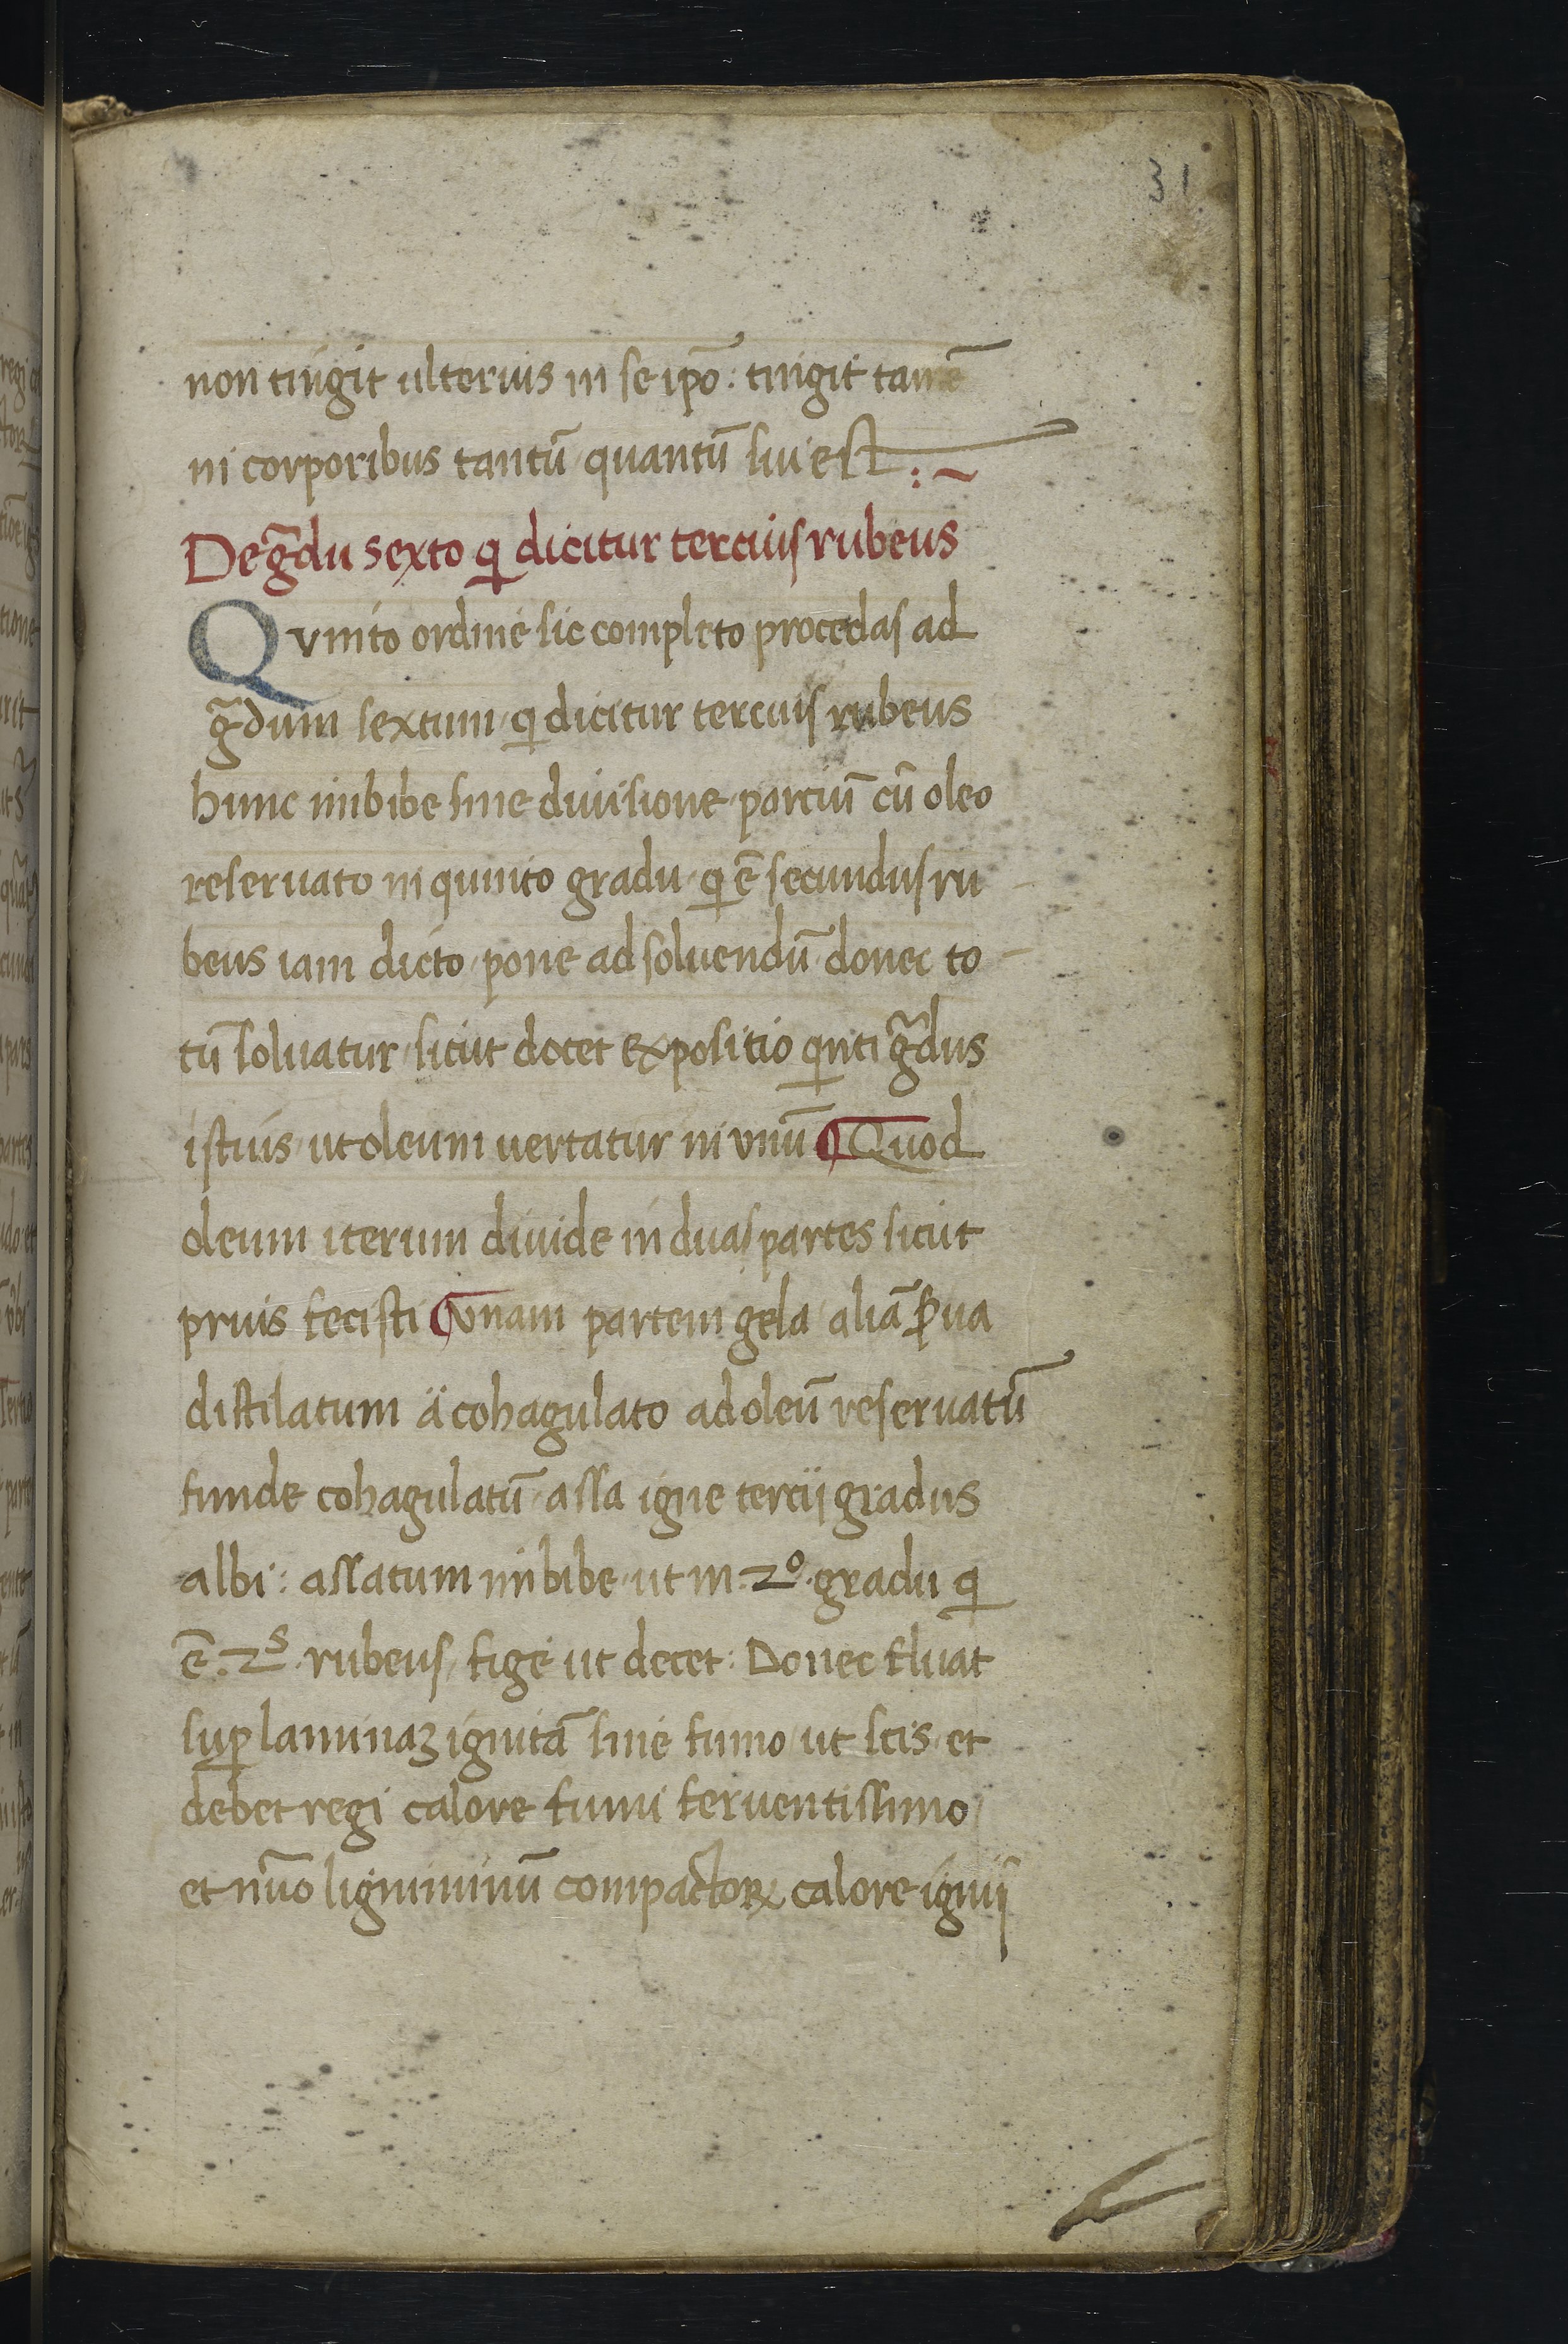 31
non tingit ulterius in se ipō: tingit tamē
in corporibus tantū quantū sui est :~
De g̃du sexto qi dicitur tercius rubeus
Qvinto ordine sic completo procedas ad
g̃dum sextum qi dicitur tercius rubeus
hunc imbibe sine divisione parciū cū oleo
reservato in quinto gradu qi ē secundus ru
beus iam dicto pone ad solvendū donec to
tū solvatur sicut docet expositio qinti g̃dus
istius ut oleum vertatur in vnū ¶ Quod
oleum iterum divide in duas partes sicut
prius fecisti ¶ vnam partem gela aliā ꝑua
distilatum ä cohagulato ad oleū reservatū
funde cohagulatū assa igne tercij gradus
albi: assatum imbibe ut in .2º. gradu qi
ē .2ˢ. rubeus, fige ut decet: Donec fluat
suꝑ laminaꝫ ignitā sine fumo ut scis et
debet regi calore fumi ferventissimo
et nūo ligniminū compactoꝝ calore ignij